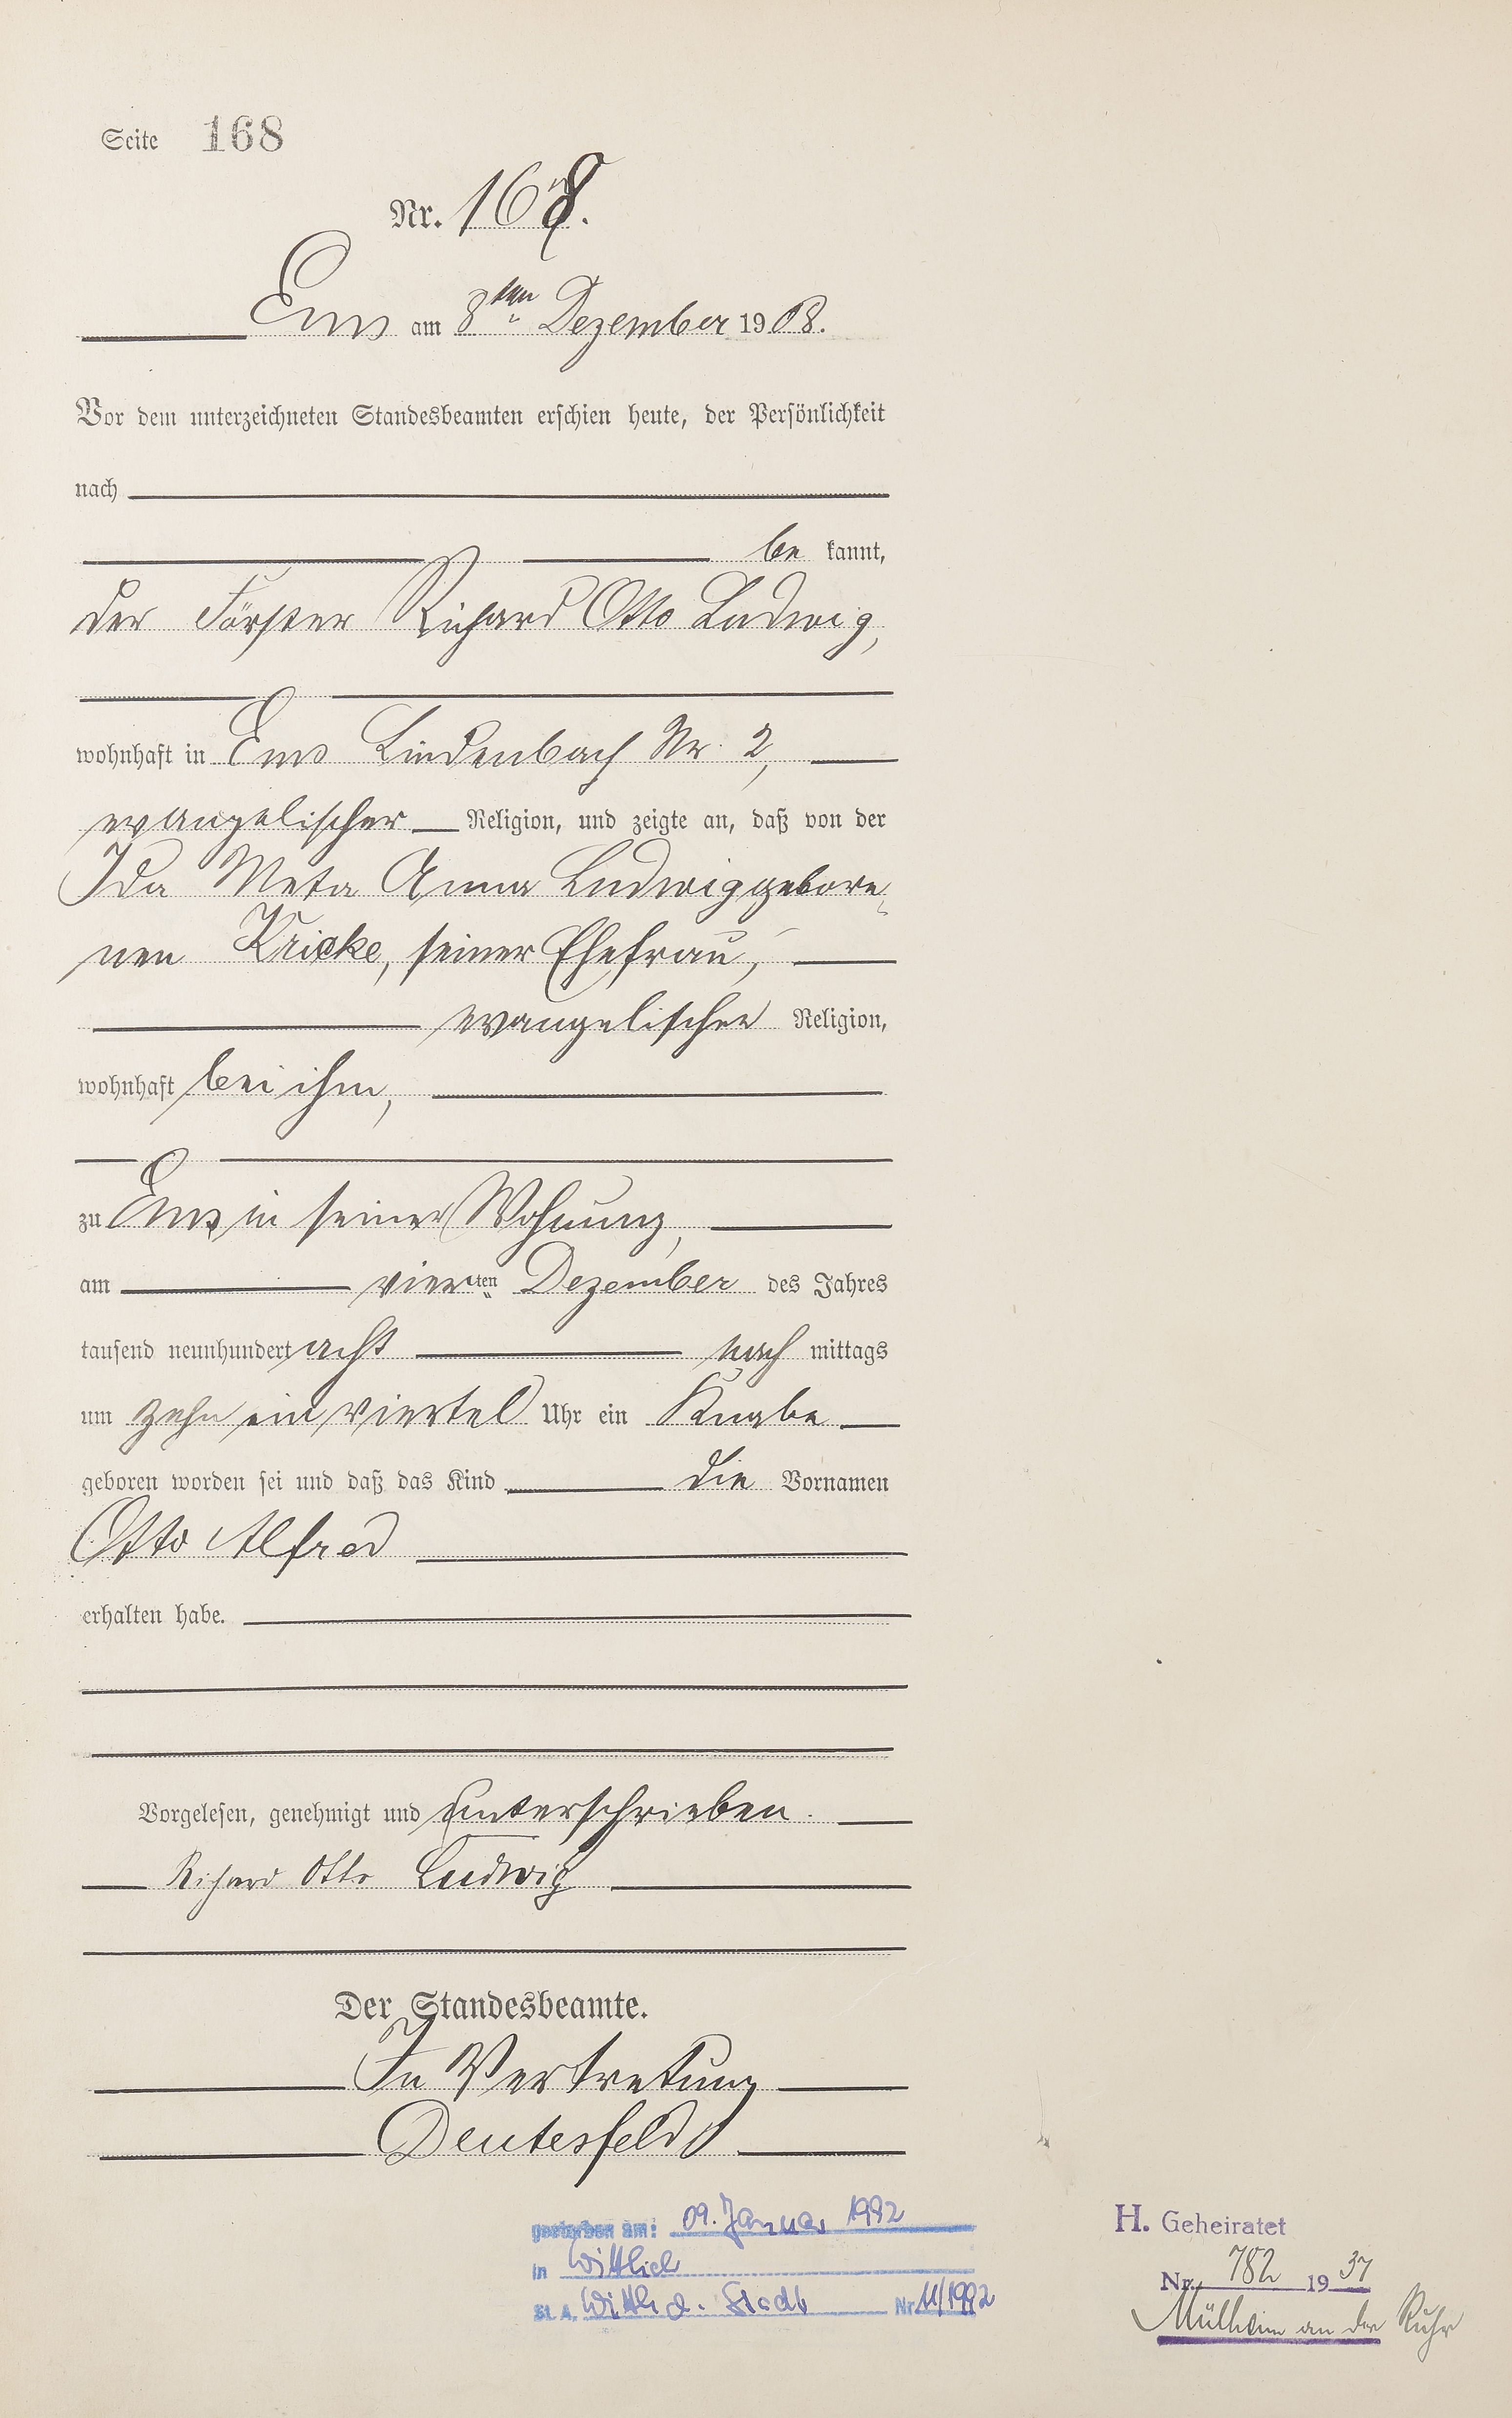 Seite 168
Nr. 168.
Ems am 8ten Dezember 1908.
Vor dem unterzeichneten Standesbeamten erschien heute, der Persönlichkeit
nach
be kannt,
der Förster Richard Otto Ludwig,
wohnhaft in Ems Lindenbach Nr. 2,
evangelischer Religion, und zeigte an, daß von der
Ida Meta Anna Ludwig gebore¬
nen Kricke, seiner Ehefrau,
evangelischer Religion,
wohnhaft bei ihm,
zu Ems in seiner Wohnung,
am vierten Dezember des Jahres
tausend neunhundert acht nach mittags
um zehn ein viertel Uhr ein Knabe
geboren worden sei und daß das Kind die Vornamen
Otto Alfred
erhalten habe.
Vorgelesen, genehmigt und unterschrieben.
Richard Otto Ludwig
Der Standesbeamte.
In Vertretung
Deutesfeld
gestorben am: 09. Januar 1992
in Wittlich
St. A. Wittlich-Stadt Nr 11/1992
H. Geheiratet
Nr. 782 1937
Mülheim an der Ruhr